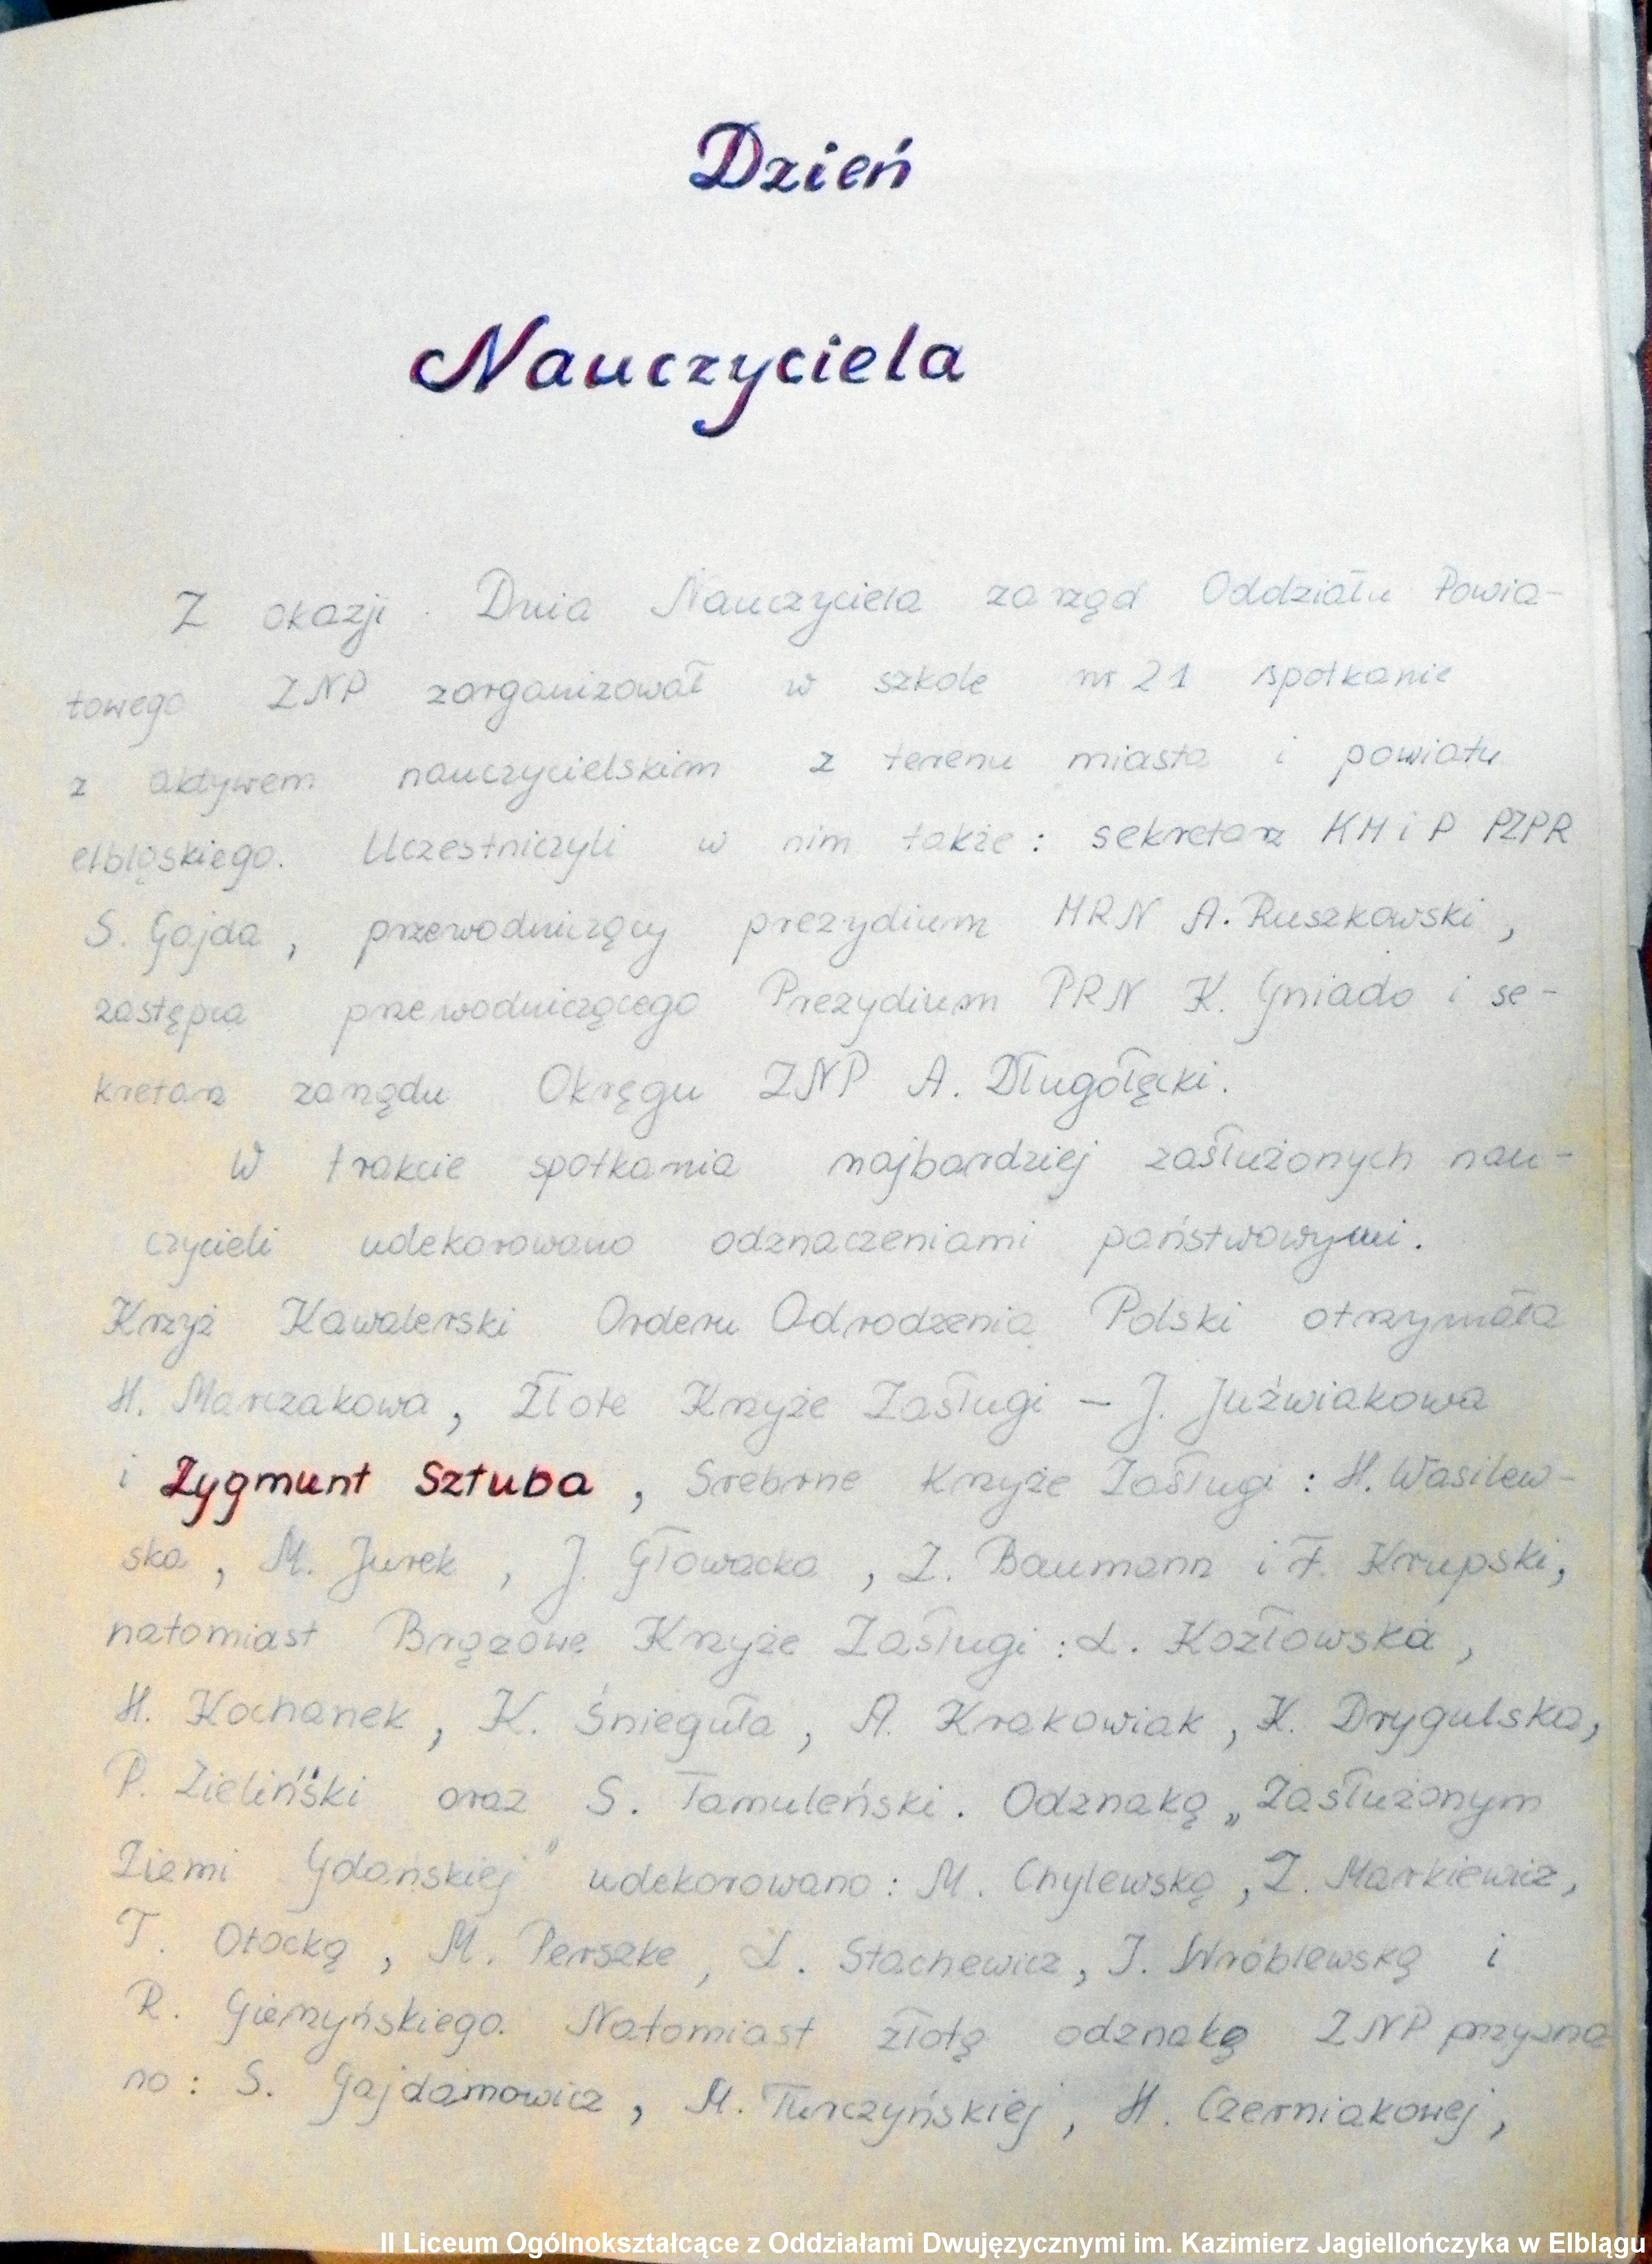 Dzień
Nauczyciela
Z okazji Dnia Nauczyciela zarząd Oddziału Powia-
towego ZNP zorganizował w szkole nr 21 spotkanie
z aktywem nauczycielskim z terenu miasta i powiatu
elbląskiego. Uczestniczyli w nim także: sekretarz KM i P PZPR
S. Gajda, przewodniczący prezydium MRN A. Ruszkowski,
zastępca przewodniczącego Prezydium PRN K. Gniado i se-
kretarz zarządu Okręgu ZNP A. Długołęcki.
W trakcie spotkania najbardziej zasłużonych nau-
czycieli udekorowano odznaczeniami państwowymi.
Krzyż Kawalerski Orderu Odrodzenia Polski otrzymała
H. Marczakowa, Złote Krzyże Zasługi – J. Juźwiakowa
i Zygmunt Sztuba, Srebrne Krzyże Zasługi: H. Wasilew-
ska, M. Jurek, J. Głowacka, Z. Baumann i F. Krupski,
natomiast Brązowe Krzyże Zasługi: L. Kozłowska,
H. Kochanek, K. Śnieguła, A. Krakowiak, K. Drygulska,
P. Zieliński oraz S. Tamuleński. Odznaką „Zasłużonym
Ziemi Gdańskiej" udekorowano: M. Chylewską, Z. Markiewicz,
T. Otocką, M. Perszke, L. Stachewicz, J. Wróblewską i
R. Gierzyńskiego. Natomiast złotą odznakę ZNP przyzna
no: S. Gajdamowicz, M. Turczyńskiej, H. Czerniakowej,
II Liceum Ogólnokształcące z Oddziałami Dwujęzycznymi im. Kazimierz Jagiellończyka w Elblągu